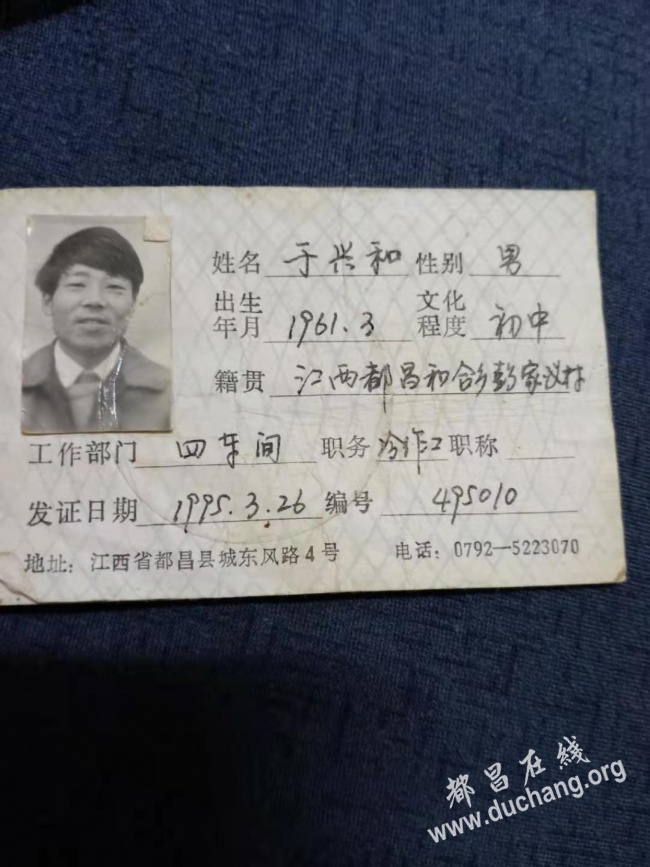 姓名 于兴和 性别 男
出生年月 1961.3 文化程度 初中
籍贯 江西都昌和合乡彭家汊村
工作部门 四车间 职务 冷作工 职称
发证日期 1995.3.26 编号 495010
地址：江西省都昌县城东风路4号 电话：0792—5223070
都昌在线
www.duchang.org